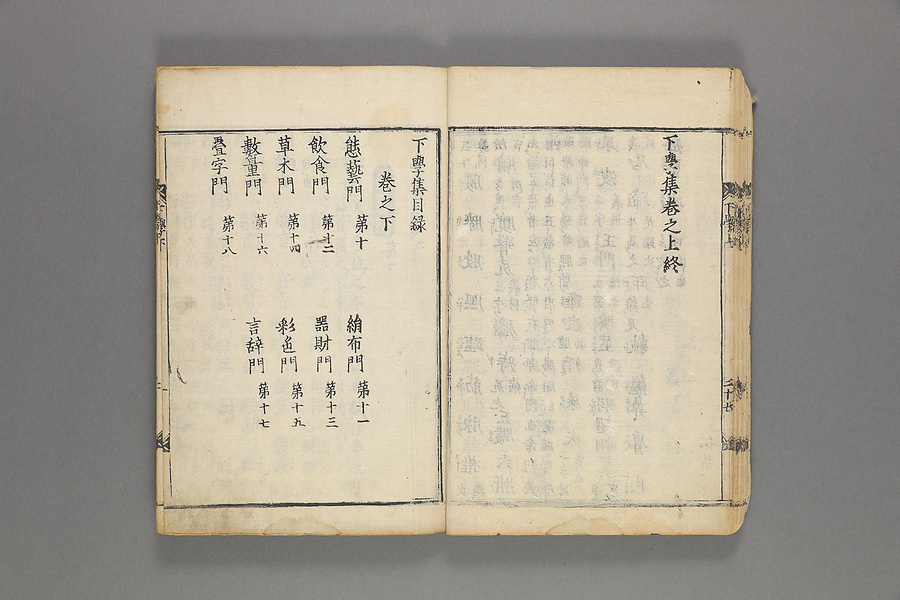 下學集巻之上終
二十七
下學集目録
巻之下
態藝門 第十
絹布門 第十一
飲食門 第十二
器財門 第十三
草木門 第十四
彩色門 第十五
數量門 第十六
言辞門 第十七
疊字門 第十八